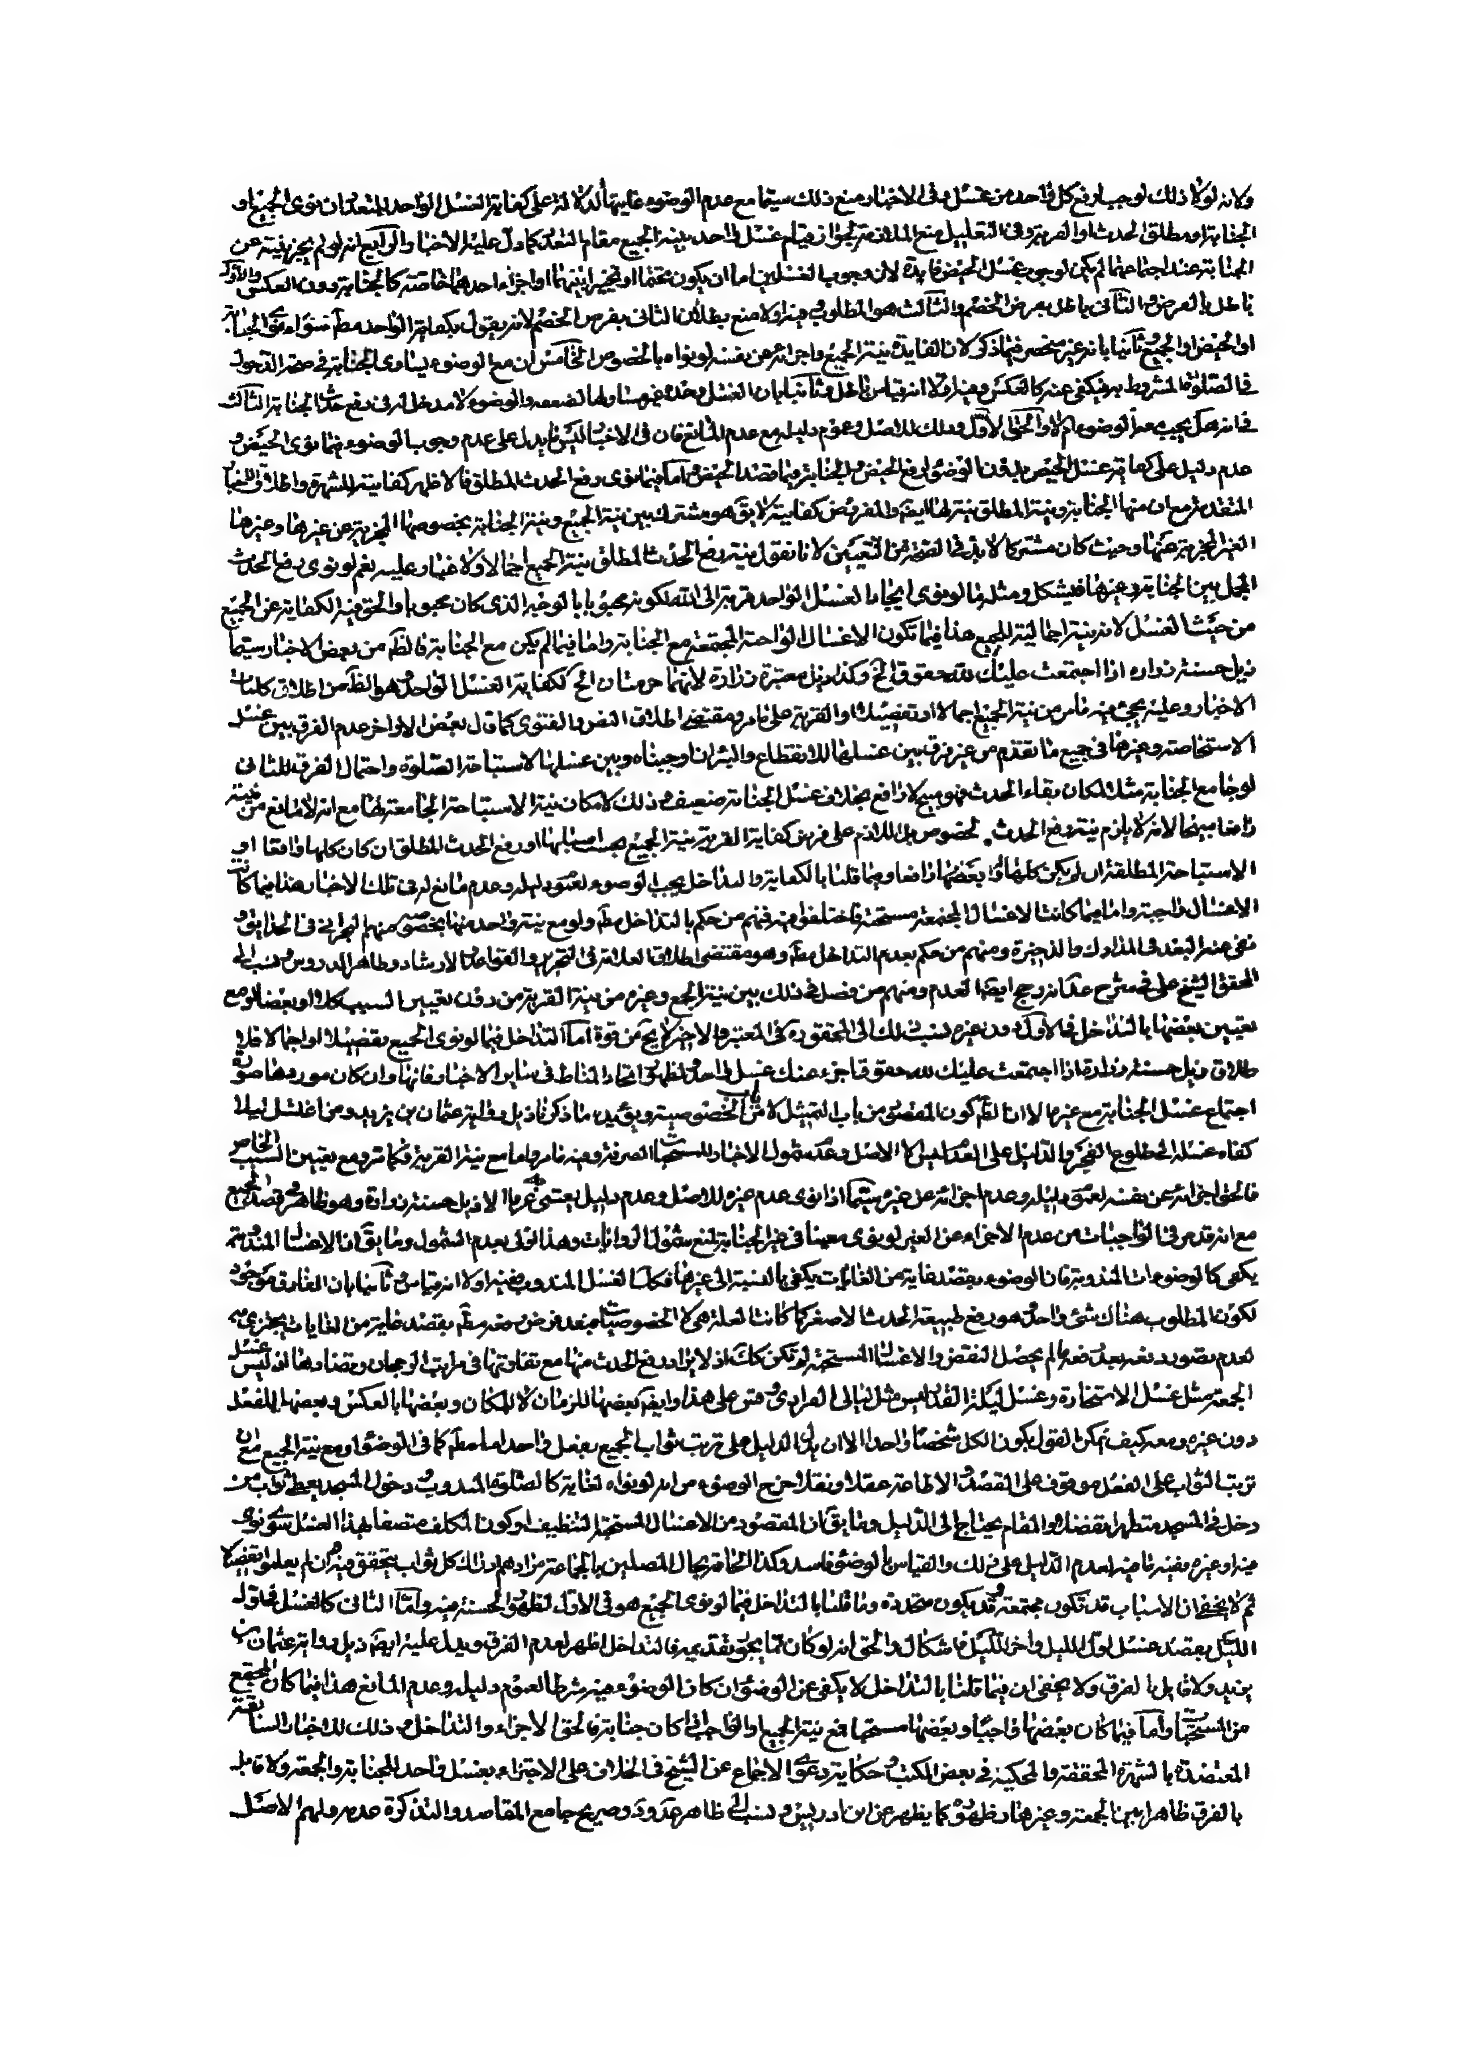 ولانه لولا ذلك لوجب لرفع كل واحد من غسل وفى الاخبار منع ذلك سيما مع عدم الوضوء غايتها الدلالة على كفاية الغسل الواحد للمتعدد ان نوى الجميع او
الجنابة او مطلق الحدث او القربة وفى التعليل منع الملازمة لجواز قيام غسل واحد بنية الجميع مقام المتعدد كما دل عليه الاخبار والرابع انه لو لم يجز نيته عن
الجنابة عند اجتماعهما لم يكن لوجوب غسل الحيض فايدة لان وجوب الغسلين اما ان يكون محتما او تخييرا بينهما او اجزاء احدهما خاصة كالجنابة دون العكس والاول
باطل بالفرض والثانى باطل بفرض الخصم والثالث هو المطلوب وفيه اولا منع بطلان الثانى بفرض الخصم لانه يقول بكفاية الواحد مطلقا سواء نوى الجنابة
او الحيض او الجميع وثانيا بانه غير منحصر فيما ذكر لان الفايدة نية الجميع واجزائه عن نفسه لو نواه بالخصوص الخامس ان مع الوضوء يساوى الجنابة فى صحة الدخول
فى الصلوة المشروط به فيكفى عنه كالعكس وفيه اولا انه قياس باطل وثانيا بان الغسل وحده غير مساو لها لضعفه والوضوء لا مدخل له فى رفع حدث الجنابة الثالث
فى انه هل يجب معه الوضوء ام لا والحق الاول وذلك للاصل وعموم دليله مع عدم المانع فان فى الاخبار ليس ما يدل على عدم وجوب الوضوء فيما نوى الحيض و
عدم دليل على كفاية غسل الحيض بدون الوضوء لرفع الحيض والجنابة فيما قصد الحيض واما فيما نوى رفع الحدث المطلق فالاظهر كفايته للشهرة واطلاق الاخبار
المتقدمة مع ان منها الجنابة ونية المطلق نية لها ايضا والمفروض كفايته لا يق هو مشترك بين نية الجميع ونية الجنابة بخصوصها المجزية عن غيرها وغيرها
الغير المجزية عنها وحيث كان مشتركا لابد فى الصحة من التعيين لانا نقول نية رفع الحدث المطلق نية الجميع اجمالا ولا غبار عليه نعم لو نوى رفع الحدث
المجمل بين الجنابة وغيرها فيشكل ومثله ما لو نوى ايجاد الغسل الواحد قربة الى الله لكونه محبوبا بالوجه الذى كان محبوبا والحق فيه الكفاية عن الجميع
من حيث الغسل لانه نية اجمالية للجميع هذا فيما تكون الاغسال الواجبة المجتمعة مع الجنابة واما فيما لم يكن مع الجنابة فالظ من بعض الاخبار سيما
ذيل حسنة زراره اذا اجتمعت عليك لله حقوق الخ وكذا ذيل معتبرة زرارة لانهما حرمتان الخ كفاية الغسل الواحد وهو الظ من اطلاق كلمات
الاخيار وعليه يجئ فيه ما مر من نية الجميع اجمالا او تفصيلا او القربة على ما مر ومقتضى اطلاق النص والفتوى كما قال بعض الاواخر عدم الفرق بين غسل
الاستحاضة وغيرها فى جميع ما تقدم من غير فرق بين غسلها للانقطاع والبرء ان وجبناه وبين غسلها لاستباحة الصلوة واحتمال الفرق للثانى
لو جامع الجنابة مثلا لمكان بقاء الحدث فهو مبيح لا رافع بخلاف غسل الجنابة ضعيف وذلك لامكان نية الاستباحة الجامعة لها مع انه لا مانع من نية
رافع مبيحا لانه لا يلزم نية رفع الحدث. لخصوص بل اللازم على فرض كفاية القربة نية الجميع بحسب اسبابها او رفع الحدث المطلق ان كان كلها رافعا او
الاستباحة المطلقة ان لم يكن كلها او بعضها رافعا وفيما قلنا بالكفاية والتداخل يجب الوضوء لعموم دليله وعدم مانع له فى تلك الاخبار هذا فيما كانت
الاغسال واجبة واما فيما كانت الاغسال المجتمعة مستحبة فاختلفوا فيه فمنهم من حكم بالتداخل مطلقا ولو مع نية واحد منها بخصوصه منهم البحرانى فى الحدايق و
نفى عنه البعد فى المدارك والذخيرة ومنهم من حكم بعدم التداخل مطلقا وهو مقتضى اطلاق العلامة فى التحرير والقواعد والارشاد وظاهر الدروس ونسب الى
المحقق الشيخ على فى شرح عد انه رجح ايضا العدم ومنهم من فصل فى ذلك بين نية الجمع وغيره من نية القربة من دون تعيين السبب كلا او بعضا او مع
تعيين بعضها بالتداخل فى الاول دون غيره نسب ذلك الى المحقق وده فى المعتبر والاخير لا يخ من قوة اما التداخل فيما لو نوى الجميع تفصيلا او اجمالا فلا
طلاق ذيل حسنة زرارة اذا اجتمعت عليك لله حقوق اجزء عنك غسل واحد ولظهور اتحاد المناط فى ساير الاخبار فانها وان كان موردها صورة
اجتماع غسل الجنابة مع غيره الا ان الظ كون المقصود من باب التمثيل لا من باب الخصوصية ويؤيده ما ذكرنا ذيل رواية عثمان بن يزيد ومن اغتسل ليلا
كفاه غسله الى طلوع الفجر والدليل على العدم ليس الا الاصل وعدم شمول الاخبار للمستحبات الصرفة وفيه ما مر واما مع نية القربة فكما مر ومع تعيين السبب الخاص
فالحق اجزائه عن نفسه لعموم دليله وعدم اجزائه عن غيره سيما اذا نوى عدم غيره للاصل وعدم دليل يعتنى به الا ذيل حسنة زرارة وهو ظاهر فى قصد الجميع
مع انه قد مر فى الواجبات من عدم الاجزاء عن الغير لو نوى معينا فى غير الجنابة لمنع شمول الروايات وهذا اولى بعدم الشمول وما يق ان الاغسال المندوبة
يكفى كالوضوءات المندوبة فان الوضوء بقصد غاية من الغايات يكفى بالنسبة الى غيرها فكذا الغسل المندوب ففيه اولا انه قياس وثانيا بان الفارق موجود
لكون المطلوب هناك شئ واحد وهو رفع طبيعة الحدث الاصغر كما كانت العلة هى لا الخصوصيات فبعد فرض رفعه مطلقا بقصد غاية من الغايات يجتزى به
لعدم تصور رفعه بعد رفعه ما لم يحصل النقض والاغسال المستحبة لم تكن كك اذ لا يراد رفع الحدث منها مع تفاوتها فى مراتب الرجحان وتضادها اذ ليس غسل
الجمعة مثل غسل الاستخارة وغسل ليلة القدر ليس مثل ليالى الفرادى وقس على هذا وايضا بعضها للزمان لا للمكان وبعضها بالعكس وبعضها للفعل
دون غيره ومعه كيف يمكن القول بكون الكل شخصا واحدا الا ان يدل الدليل على ترتب ثواب الجميع بفعل واحد اما مطلقا كما فى الوضوء او مع نية الجميع مع ان
ترتب الثواب على الفعل موقوف على القصد والاطاعة عقلا ونقلا خرج الوضوء من انه لو نواه لغاية كالصلوة المندوب ودخول المسجد يعطى ثواب من
دخل فى المسجد متطهرا تفضلا والمقام يحتاج الى الدليل وما يق ان المقصود من الاغسال المستحبة التنظيف او كون المكلف متصفا بهذا الغسل سواء نوى
فيه او غيره ففيه ما فيه لعدم الدليل على ذلك والقياس بالوضوء فاسد وكذا الحاقه بحال المصلين بالجماعة من ادراكهم ذلك كل ثواب يتحقق فيه وان لم يعلموا تفصيلا
ثم لا يخفى ان الاسباب قد تكون مجتمعة وقد يكون متجددة وما قلنا بالتداخل فيما لو نوى الجميع هو فى الاول لظهور الحسنة فيه واما الثانى كالغسل فى اول
الليل بقصد غسل اول الليل واخر الليل فاشكال والحق انه لو كان مما يجوز تقديمه فالتداخل اظهر لعدم الفرق ويدل عليه ايضا ذيل رواية عثمان بن
يزيد ولا قايل بالفرق ولا يخفى ان فيما قلنا بالتداخل لا يكفى عن الوضوء ان كان الوضوء فيه شرطا لعموم دليله وعدم المانع هذا فيما كان المجتمع
من المستحبات واما فيما كان بعضها واجبا وبعضها مستحبا فمع نية الجميع او الواجب ان كان جنابة فالحق الاجزاء والتداخل وذلك للاخبار السابقة
المعتضدة بالشهرة المحققة والمحكية فى بعض الكتب وحكاية دعوى الاجماع عن الشيخ فى الخلاف على الاجتزاء بغسل واحد للجنابة والجمعة ولا قايل
بالفرق ظاهرا بين الجمعة وغيرها وظهوره كما يظهر عن ابن ادريس ونسب الى ظاهر عد ود وصريح جامع المقاصد والتذكرة عدمه ولهم الاصل